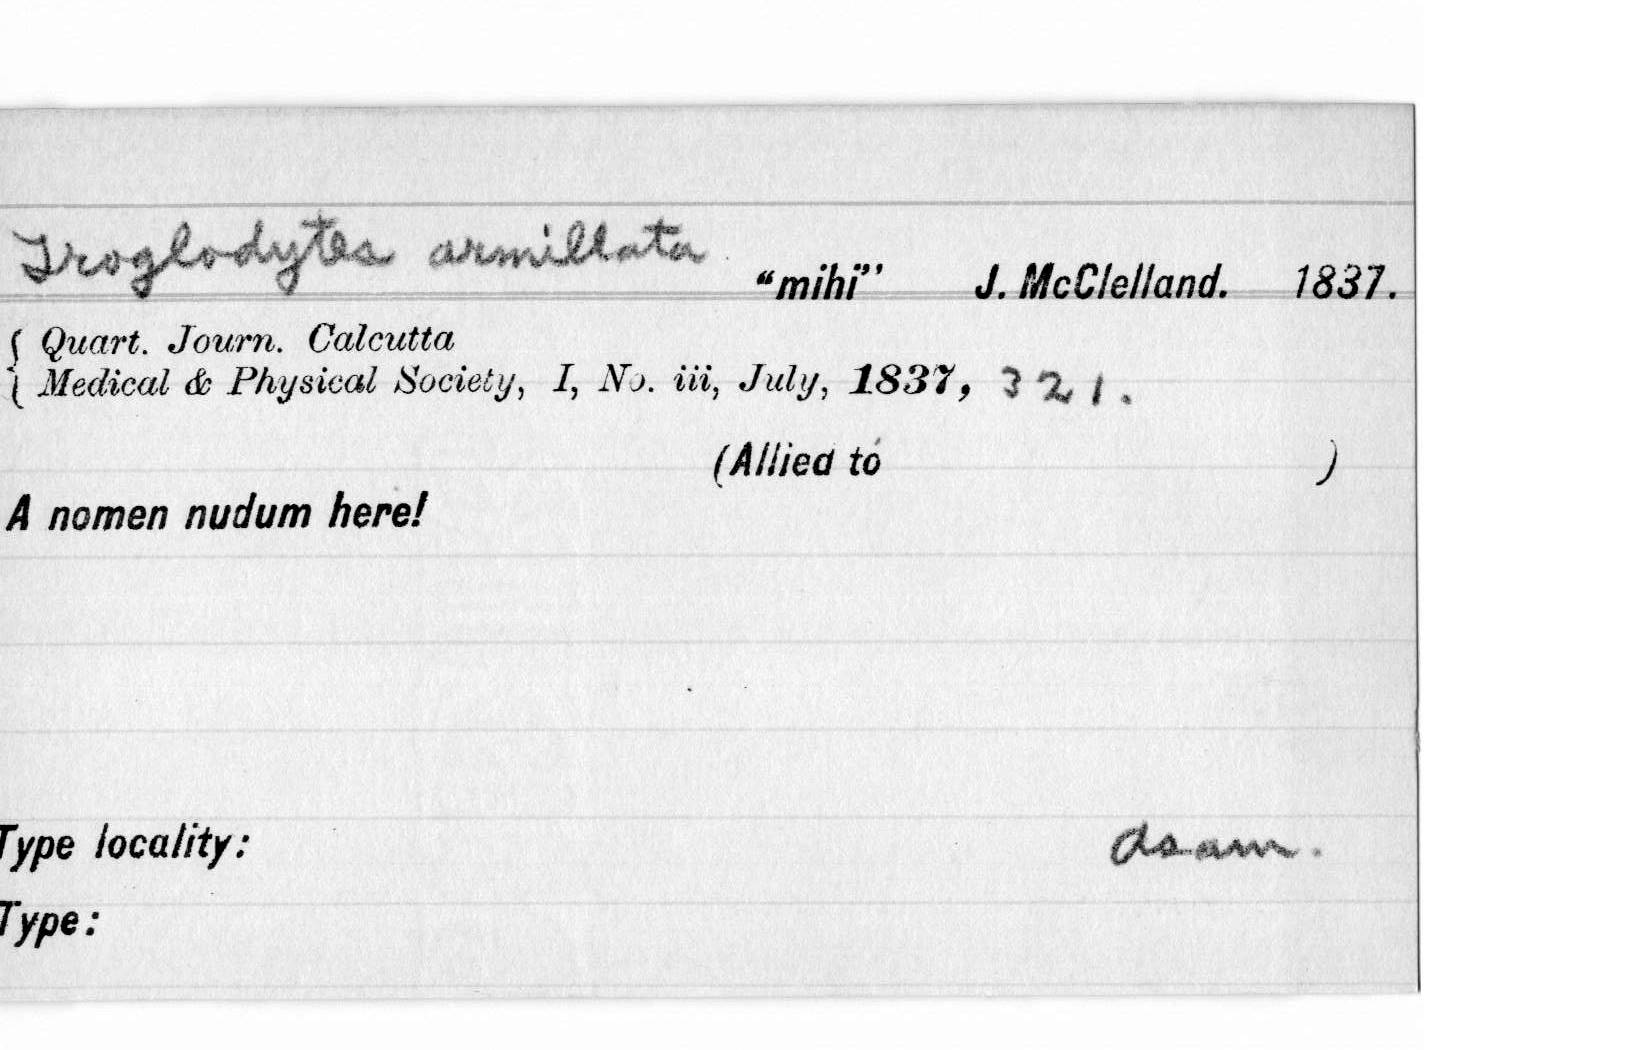 Troglodytes armillata "mihi" J. McClelland. 1837.
Quart. Journ. Calcutta
Medical & Physical Society, I, No. iii, July, 1837, 321.
(Allied to )
A nomen nudum here!
Type locality: Asam.
Type: